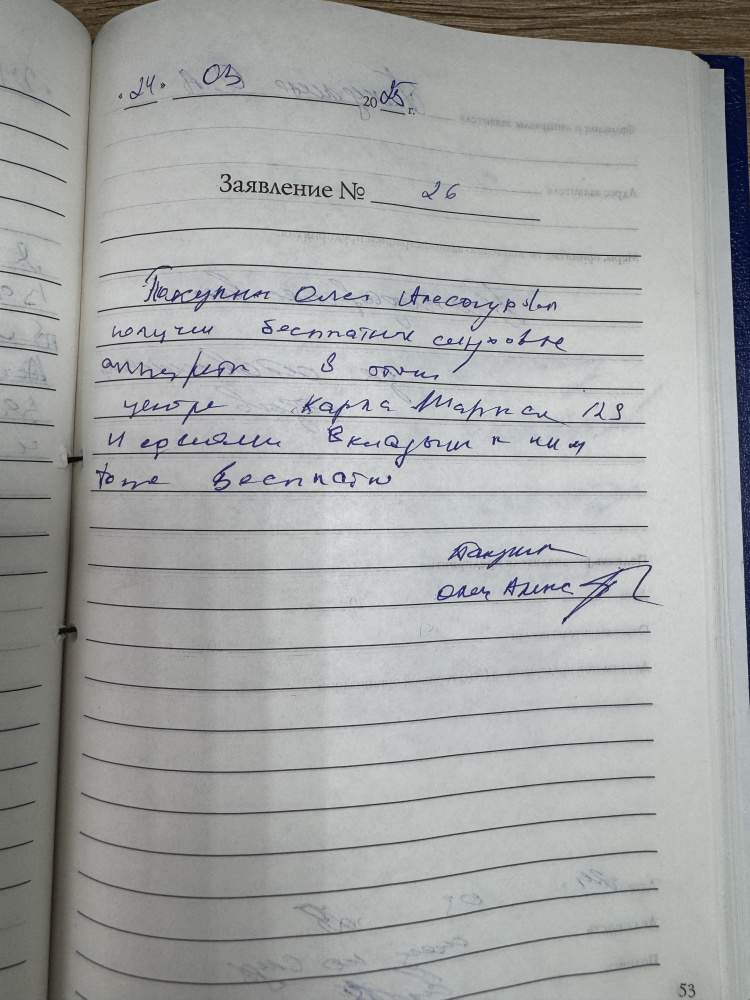 « 24 » 03 2025 г.
Заявление № 26
Олег
получил бесплатные слуховые
аппараты в этом
центре Карла Маркса 129
И сделали вкладыши к ним
тоже Бесплатно
Олег Алекс
53